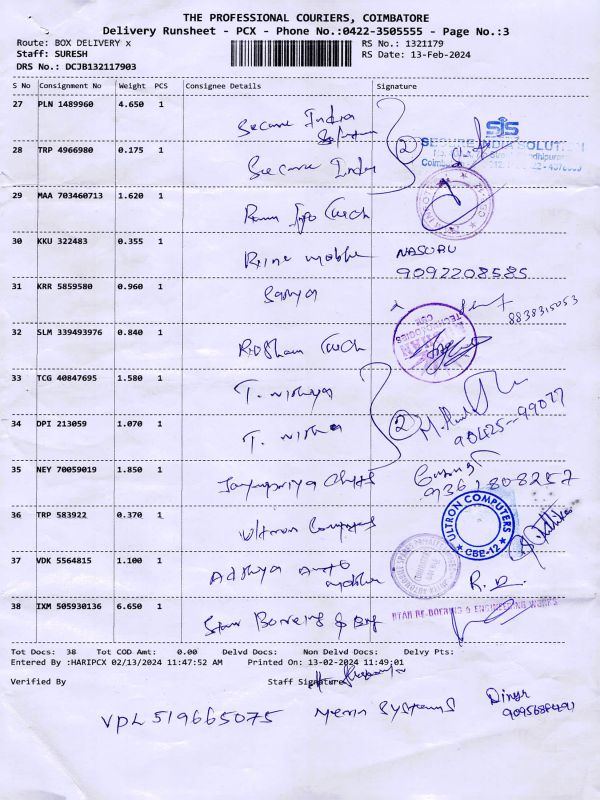 THE PROFESSIONAL COURIERS, COIMBATORE
Delivery Runsheet - PCX - Phone No.:0422-3505555 - Page No.:3
Route: BOX DELIVERY x RS No.: 1321179
Staff: SURESH RS Date: 13-Feb-2024
DRS No.: DCJB132117903
S No Consignment No Weight PCS Consignee Details Signature
27 PLN 1489960 4.650 1 Secure India Solution
28 TRP 4966980 0.175 1 Secure India 2
SIS
SECURE INDIA SOLUTION
29 MAA 703460713 1.620 1 Ram Info Tech
30 KKU 322483 0.355 1 Rine mobile NASURU
9092208585
31 KRR 5859580 0.960 1 Sathya
8838315053
32 SLM 339493976 0.840 1 Roshan Tech
33 TCG 40847695 1.580 1 T. nithya
34 DPI 213059 1.070 1 T. nithya 2
90425-99077
35 NEY 70059019 1.850 1
9361808257
36 TRP 583922 0.370 1 Ultron Computers
ULTRON COMPUTERS
CBE-12
37 VDK 5564815 1.100 1 Adithya Auto mobile R.D.
38 IXM 505930136 6.650 1 Star Boreing & Eng
STAR RE-BOERING & ENGINEERING WORKS
Tot Docs: 38 Tot COD Amt: 0.00 Delvd Docs: Non Delvd Docs: Delvy Pts:
Entered By :HARIPCX 02/13/2024 11:47:52 AM Printed On: 13-02-2024 11:49:01
Verified By Staff Signature
VPL 519665075 Systems